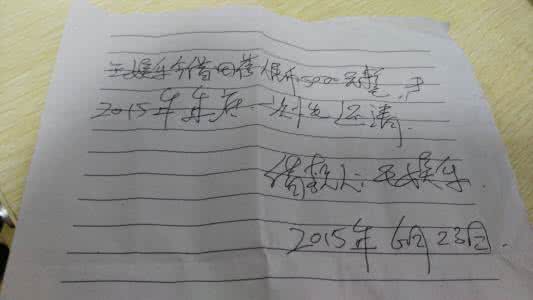 娱乐今借田 人民币500元整,于
2015年年底一次性还清.
借款人: 娱乐.
2015年6月23日.